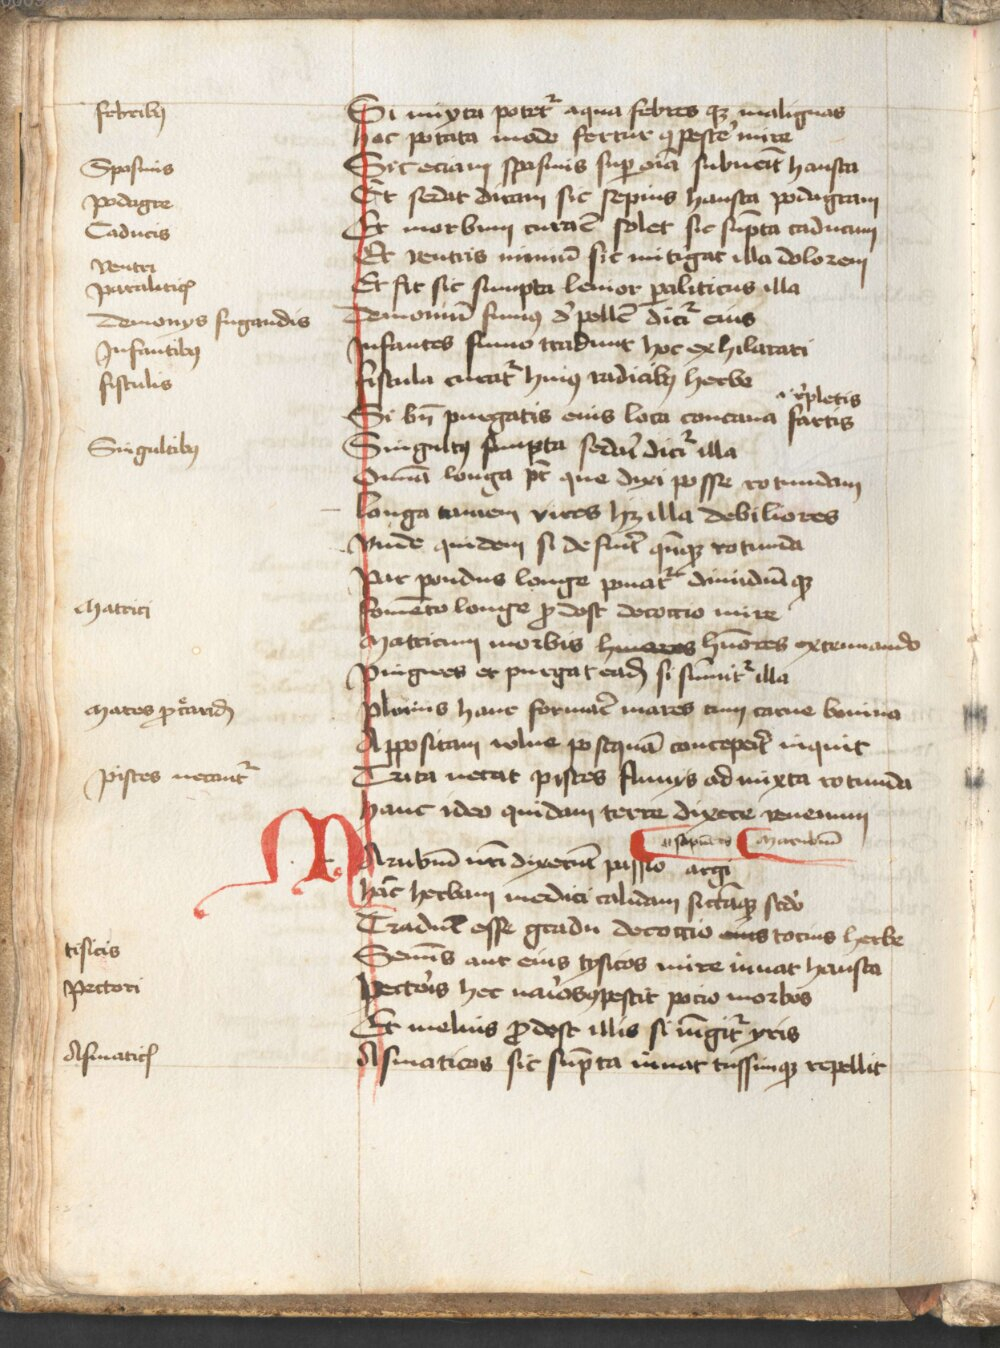 febribus
Si mixta potetur aqua febres quoque malignas
hoc potata modo fertur quod peste mire
Spasmis
Sic eciam spasmis super omnia subuenit hausta
Podagre
Et sedat diram sic sepius hausta podagram
Caducis
Et morbum curare solet sic sumpta caducum
Ventri
Et ventris nimium sic mitigat illa dolorem
Paraliticis
Et fit sic sumpta leuior paraliticus illa
Demonys fugandis
Demonium fumus depellere dicitur eius
Infantibus
Infantes fumo tradunt hoc exhilarari
fistulis
fistula curatur huius radicibus herbe
repletis
Si bene purgatis eius loca concaua fartis
Singultibus
Singultus sumpta sedari dicitur illa
Omnia longa potest que dixi posse rotundam
longa tamen vires habet illa debiliores
Vnde quidem si defuerit quandoque rotunda
Par pondus longe ponatur dimidiumque
Matrici
fomento longe prodest decoctio mire
Matricum morbis humores humores extenuando
Pingues et purgat eadem si sumitur illa
Mares procreandis
Plinius hanc formare mares cum carne bouina
Appositam vulue postquam conceperit inquit
Pisces necantur
Trita necat pisces fluuiis admixta rotunda
hanc ideo quidam terre dixere venenum
Marubium
Marubium nostri dixerunt passio argi
hanc herbam medici calidam siccamque secundo
Tradunt esse gradu decoctio eius tocius herbe
tisicis
Seminis aut eius tysicos mire iuuat hausta
Pectori
Pectoris hec uariosque pestit pocio morbos
Et melius prodest illis si iungitur yris
Asmaticis
Asmaticos sic sumpta iuuat tussimque repellit